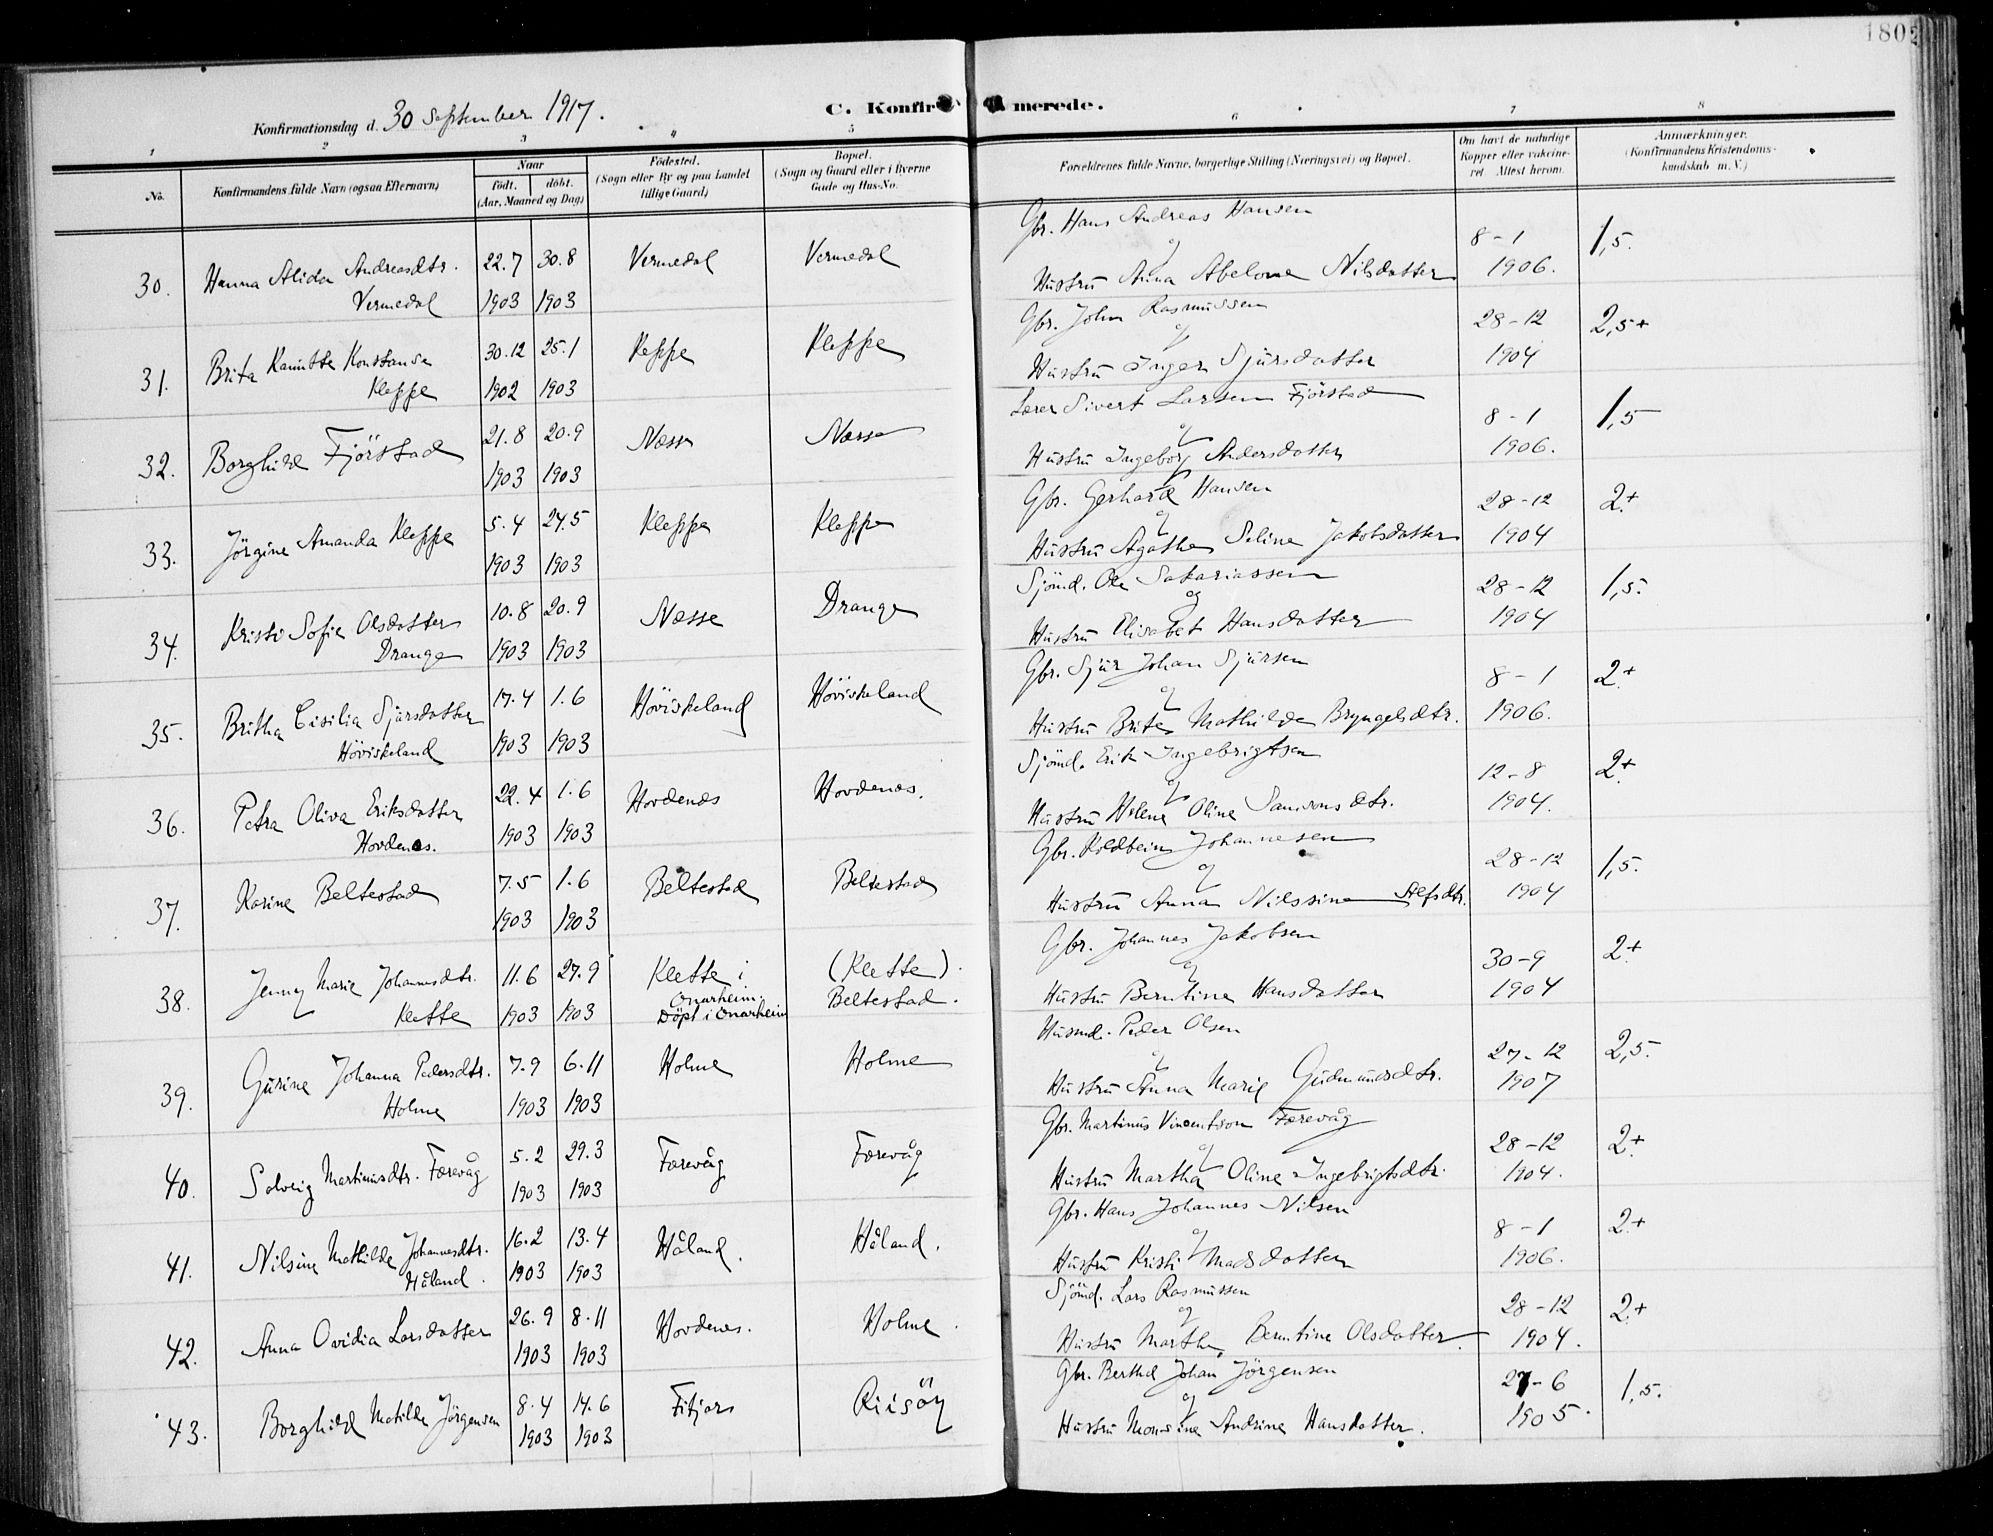 180
Konfirmationsdag d. 30 September 1917.
C. Konfirmerede.
1 2 3 4 5 6 7 8
No. Konfirmandens fulde Navn (ogsaa Efternavn)
Naar
födt. döbt.
(Aar, Maaned og Dag)
Födested.
(Sogn eller By og paa Landet
tillige Gaard)
Bopæl.
(Sogn og Gaard eller i Byerne
Gade og Hus-No.
Forældrenes fulde Navne, borgerlige Stilling (Næringsvei) og Bopæl.
Om havt de naturlige
Kopper eller vaccine-
ret. Attest herom.
Anmærkninger.
(Konfirmandens Kristendoms-
kundskab m. V.)
Gbr. Hans Andreas Hansen
30. Hanna Alida Andreasdtr. 22.7 30.8 Vermedal Vermedal og 8-1 1,5.
Vermedal 1903 1903 Hustru Anna Abelone Nilsdatter 1906.
Gbr. John Rasmussen
31. Brita Kamitta Konstanse 30.12 25.1 Keppe Kleppe og 28-12 2,5+
Kleppe 1902 1903 Hustru Inger Sjursdatter 1904
Lærer Sivert Larsen Fjörstad
32. Borghild Fjörstad 21.8 20.9 Næsse Næsse og 8-1 1,5
1903 1903 Hustru Ingeborg Andersdatter 1906.
Gbr. Gerhard Hansen
33. Jörgine Amanda Kleppe 5.4 24.5 Kleppe Kleppe og 28-12 2+
1903 1903 Hustru Agathe Seline Jakobsdatter 1904
Sjömd. Ole Sakariassen
34. Kristi Sofie Olsdatter 10.8 20.9 Næsse Drange og 28-12 1,5.
Drange 1903 1903 Hustru Elisabet Hansdatter 1904
Gbr. Sjur Johan Sjursen
35. Britha Cisilia Sjursdatter 17.4 1.6 Höviskeland Höviskeland og 8-1 2+
Höviskeland 1903 1903 Hustru Brite Mathilde Bryngelsdtr. 1906.
Sjömd. Erik Ingebrigtsen
36. Petra Oliva Eriksdatter 22.4 1.6 Hovdenes Hovdenes. og 12-8 2+
Hovdenes. 1903 1903 Hustru Helene Oline Samsonsdtr. 1904.
Gbr. Koldbein Johannesen
37. Karine Beltestad 7.5 1.6 Beltestad Beltestad og 28-12 1,5.
1903 1903 Hustru Anna Nilssine Alfsdtr. 1904
Gbr. Johannes Jakobsen
38. Jenny Marie Johannesdtr. 11.6 27.9 Klette i (Klette). og 30-9 2+
Klette 1903 1903 Onarheim. Beltestad. Hustru Berntine Hansdatter 1904
Döpt i Onarheim
Husmd. Peder Olsen
39. Gurine Johanna Pedersdtr. 7.9 6.11 Holme Holme og 27-12 2,5.
Holme 1903 1903 Hustru Anna Marie Gudmundsdtr. 1907
Gbr. Martinus Vincentson Færevåg
40. Solveig Martinusdtr. Færevåg 5.2 29.3 Færevåg Færevåg og 28-12 2+
1903 1903 Hustru Martha Oline Ingebrigtsdtr. 1904.
Gbr. Hans Johannes Nilsen
41. Nilsine Mathilde Johannesdtr. 16.2 13.4 Håland. Håland. og 8-1 2+
Håland. 1903 1903 Hustru Kristi Madsdatter 1906.
Sjömd. Lars Rasmussen
42. Anna Ovidia Larsdatter 26.9 8.11 Hovdenes. Holme. og 28-12 2+
1903 1903 Hustru Marthe Berntine Olsdatter. 1904.
Gbr. Berthel Johan Jörgensen
43. Borghild Matilde Jörgensen 8.4 14.6 Fitjar Risöy og 27-6 1,5.
1903 1903 Hustru Monsine Andrine Hansdatter. 1905.